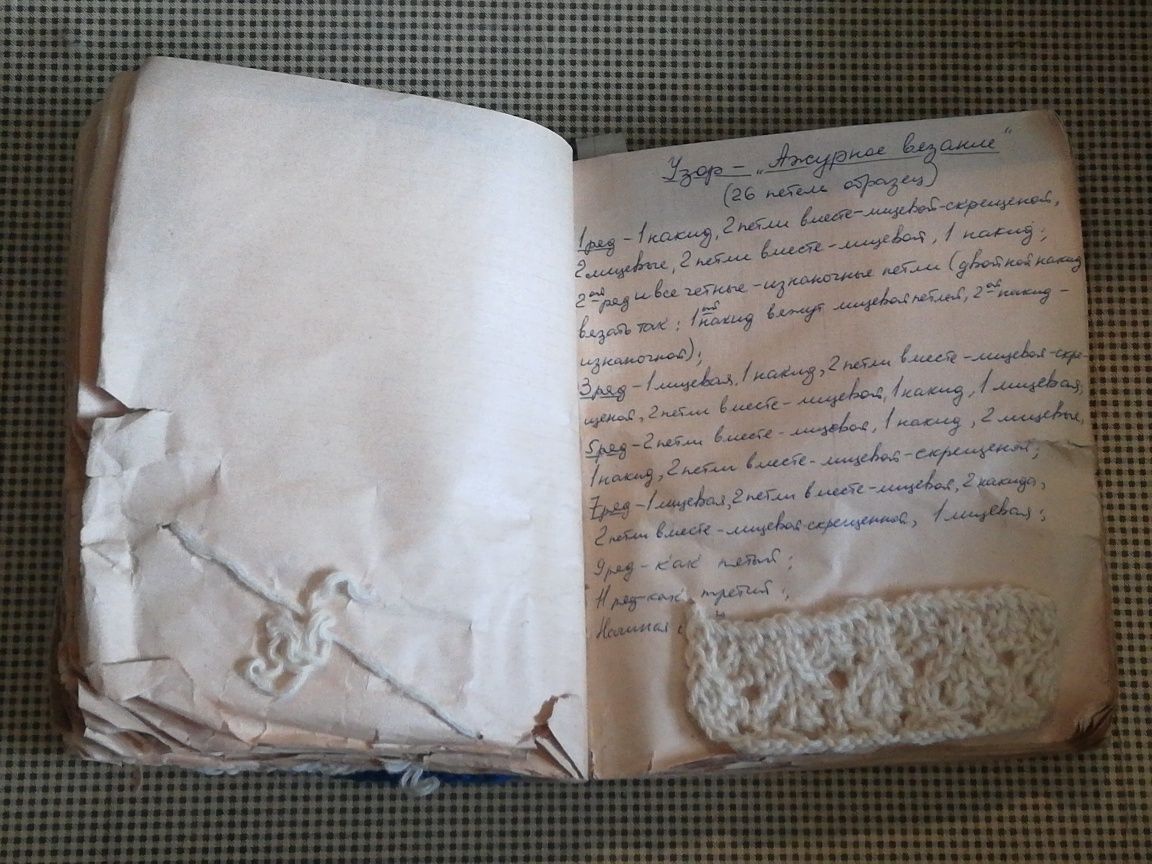 Узор - „Ажурное везание"
(26 петель образец)
1 ряд - 1 накид, 2 петли вместе-лицевой-скрещеной,
2 лицевые, 2 петли вместе-лицевой, 1 накид;
2ой ряд и все четные - изнаночные петли (двойной накид
везать так: 1ый накид вяжут лицевой петлей, 2ой накид -
изнаночной);
3 ряд - 1 лицевая, 1 накид, 2 петли вместе-лицевая-скре-
щеной, 2 петли вместе-лицевой, 1 накид, 1 лицевая;
5 ряд - 2 петли вместе-лицевая, 1 накид, 2 лицевые,
1 накид, 2 петли вместе-лицевой-скрещеной;
7 ряд - 1 лицевая, 2 петли вместе-лицевая, 2 накида,
2 петли вместе-лицевой-скрещенной, 1 лицевая;
9 ряд - как пятый;
11 ряд-как третий;
Начиная с